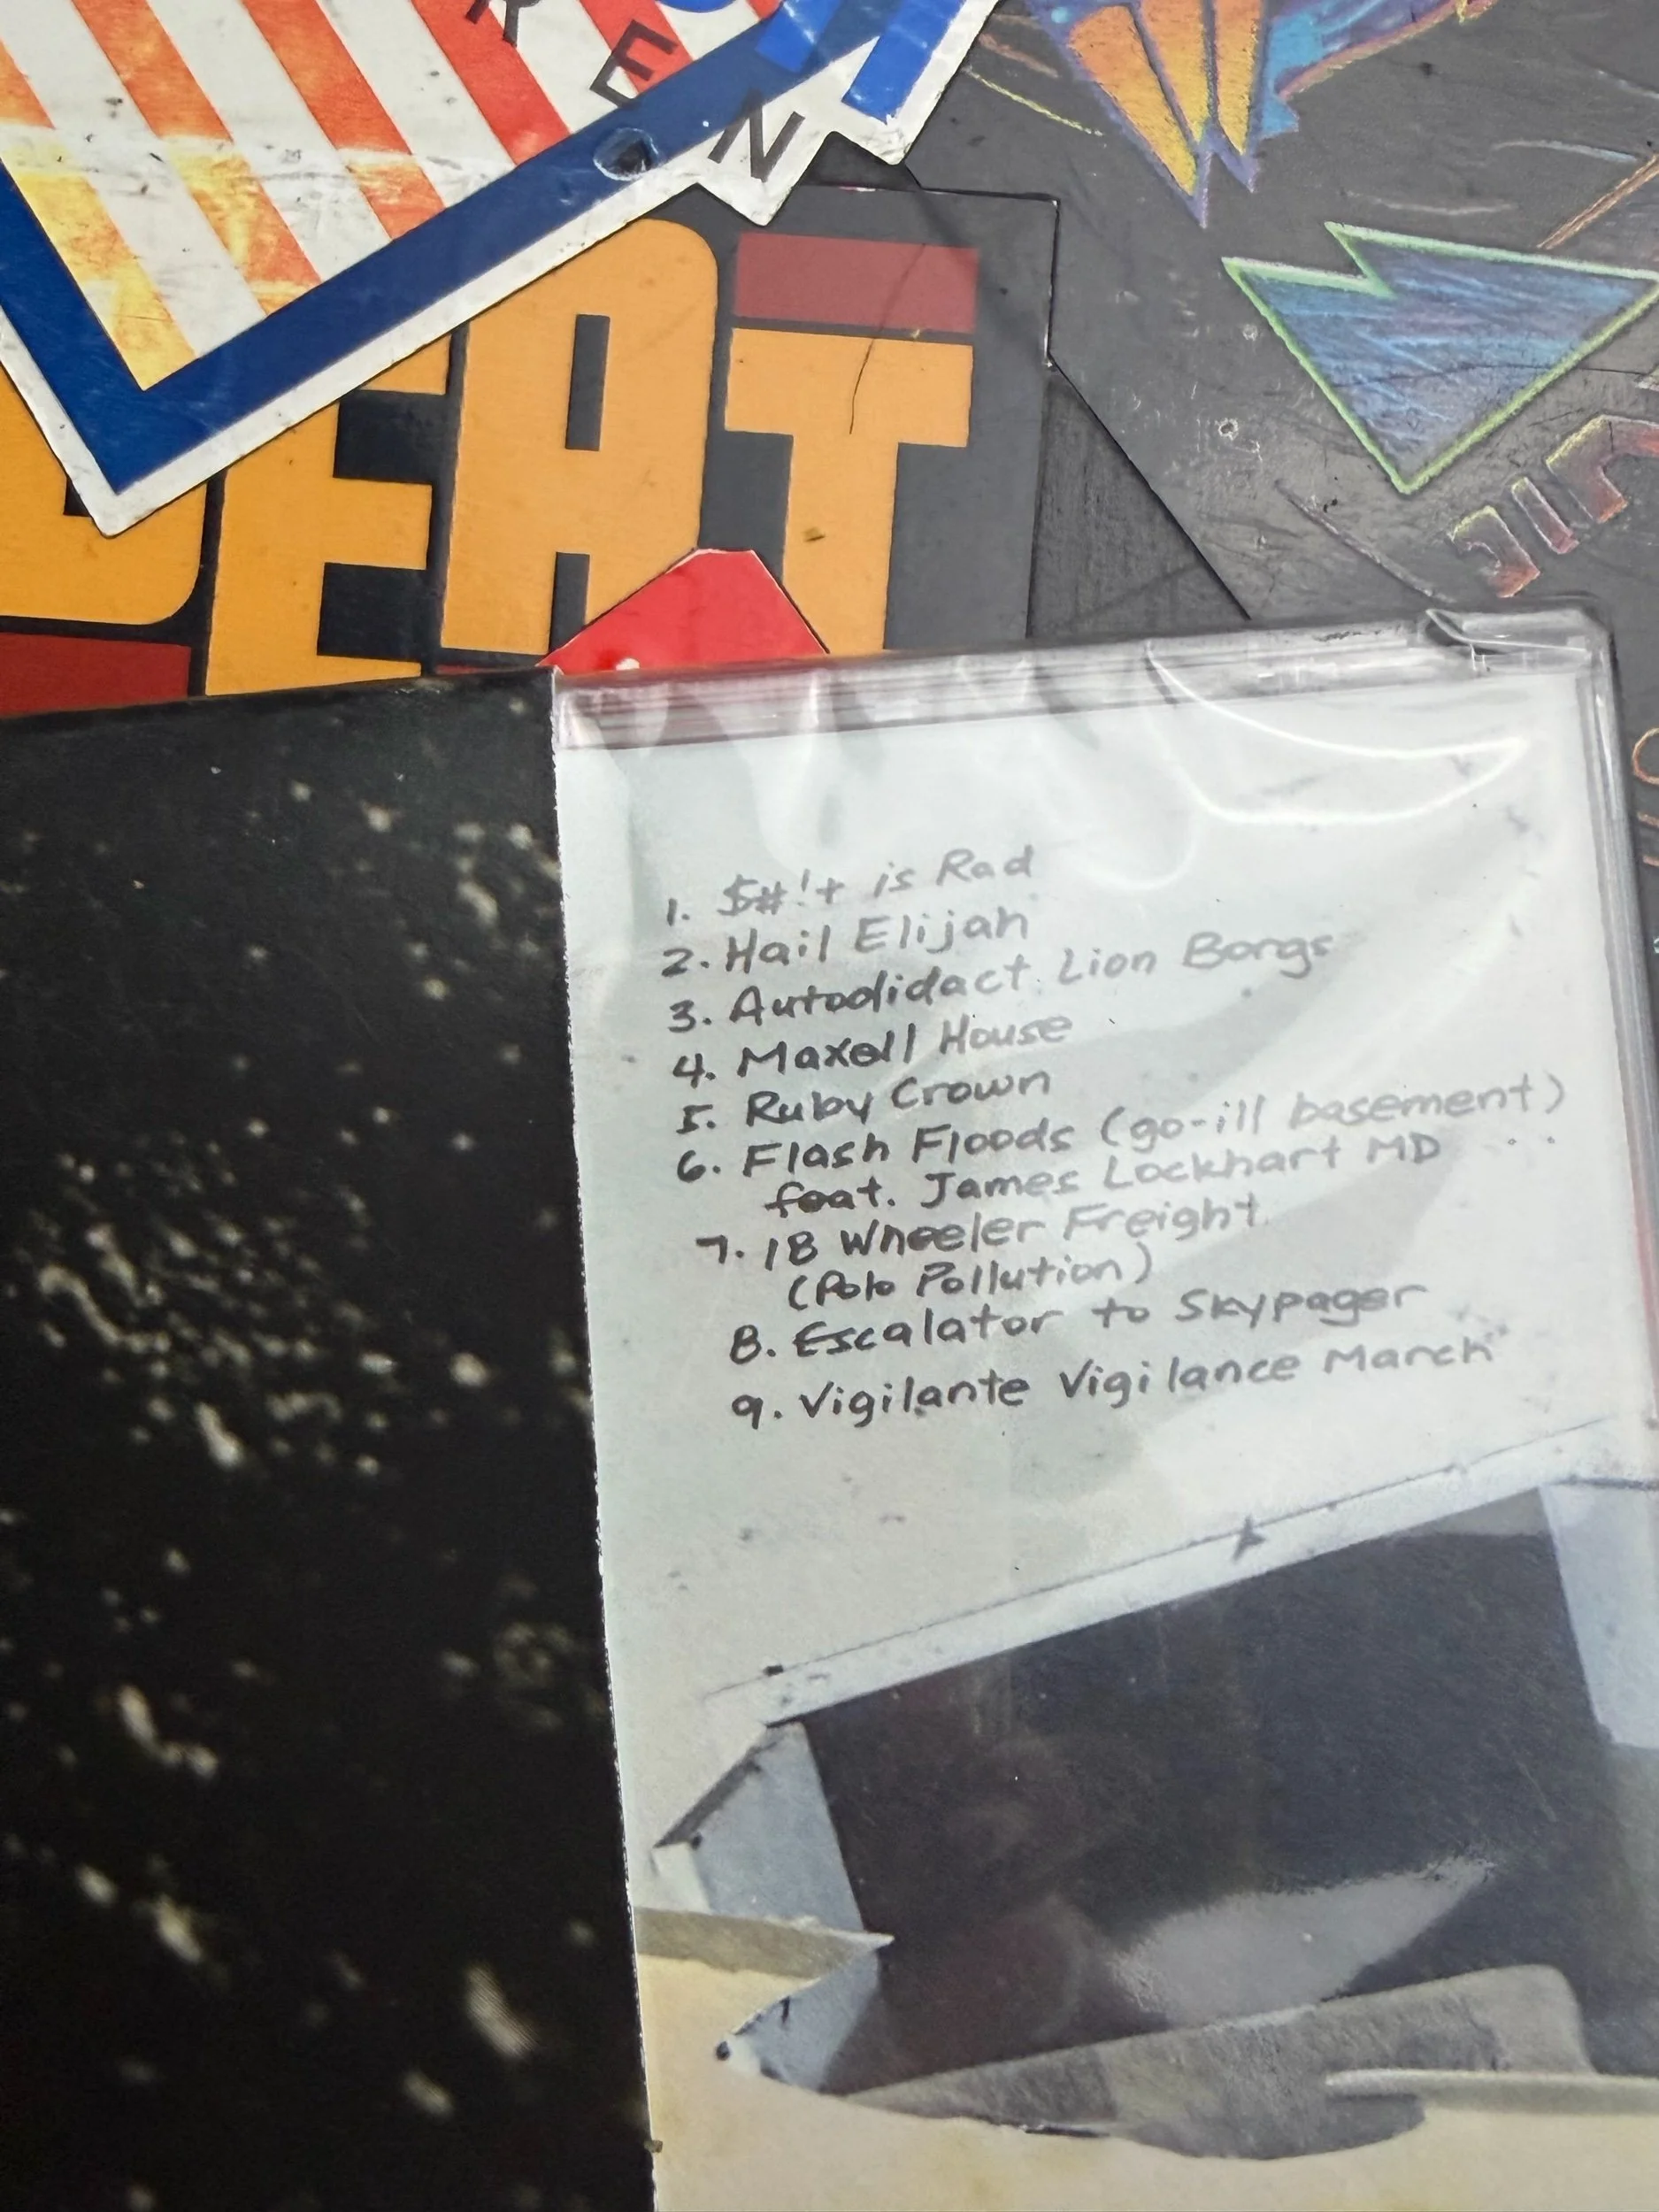 REN
BEAT
1. $#!+ is Rad
2. Hail Elijah
3. Autodidact Lion Bongs
4. Maxell House
5. Ruby Crown
6. Flash Floods (go-ill basement)
feat. James Lockhart MD
7. 18 Wheeler Freight
(Polo Pollution)
8. Escalator to Skypager
9. Vigilante Vigilance March